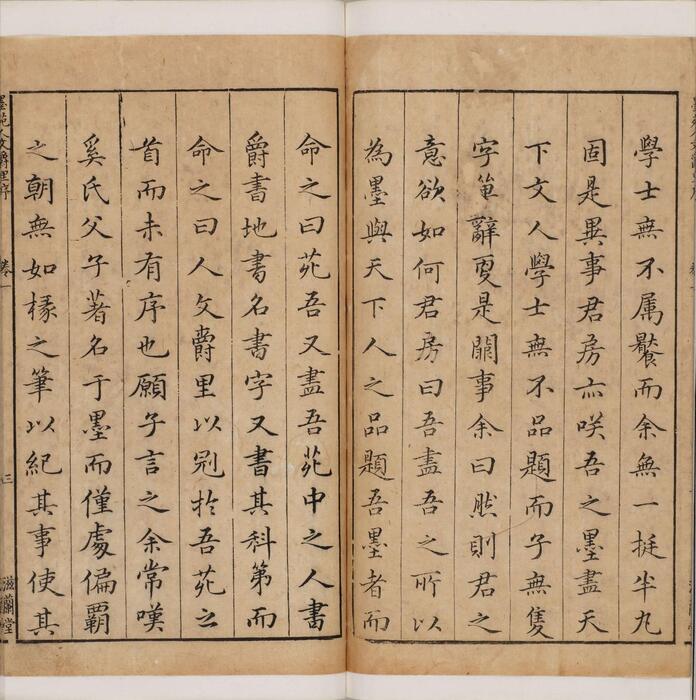 學士無不属饜而余無一挺半丸
固是異事君房亦咲吾之墨盡天
下文人學士無不品題而子無隻
字單辭更是闕事余曰然則君之
意欲如何君房曰吾盡吾之所以
為墨與天下人之品題吾墨者而
命之曰苑吾又盡吾苑中之人書
爵書地書名書字又書其科第而
命之曰人文爵里以别於吾苑之
首而未有序也願子言之余常嘆
奚氏父子著名于墨而僅處偏霸
之朝無如椽之筆以紀其事使其
墨苑人文爵里序 卷一 三 滋蘭堂